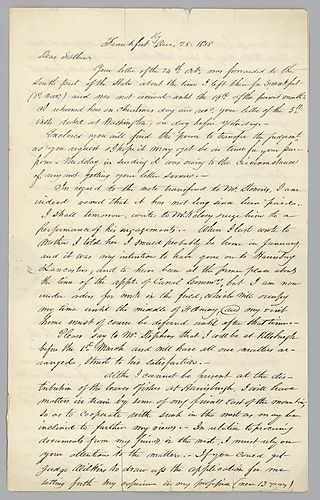 Frankfort Ky Dec. 28. 1838
Dear Father,
Your letter of the 24th Oct. was forwarded to the
South part of the State about the time I left then for Frankfort
(1st Nov.) and was not received until the 19th of the present month
I returned here on Christmas day and now your letter of the 5th
inst. dated at Washington, on day before yesterday.
Enclosed you will find the power to transfer the judgmt.
as you request & I hope it may yet be in time for your
purpose. The delay in sending it was owing to the circumstance
of my not getting your letter sooner.
In regard to the note transferred to Mr. I am
indeed vexed that it has not long since been paid.
I shall tomorrow, write to Mr. urging him to a
performance of his engagements. When I last wrote to
Mother I told her I would probably be home in January
and it was my intention to have gone on to Harrisburg
Lancaster, and to have been at the former place about
the time of the appt. of Canal Commrs., but I am now
under orders for work in the field, which will occupy
my time until the middle of February (and) my visit
home must of course be deferred until after that time.
Please say to Mr. Stephens that I will be at Pittsburgh
before the 1st March and will have all our matters ar-
ranged, I trust to his satisfaction.
Altho' I cannot be present at the dis-
tribution of the loaves & fishes at Harrisburgh, I will have
matters in train by some of my friends east of the mountains
so as to cooperate with such in the west as may be
inclined to further my views. In relation to procuring
documents from my friends in the west, I must rely on
your attention to the matter. If you could get
Judge Wilkins to draw up the application for me
setting forth my experience in my profession (now 13 years)